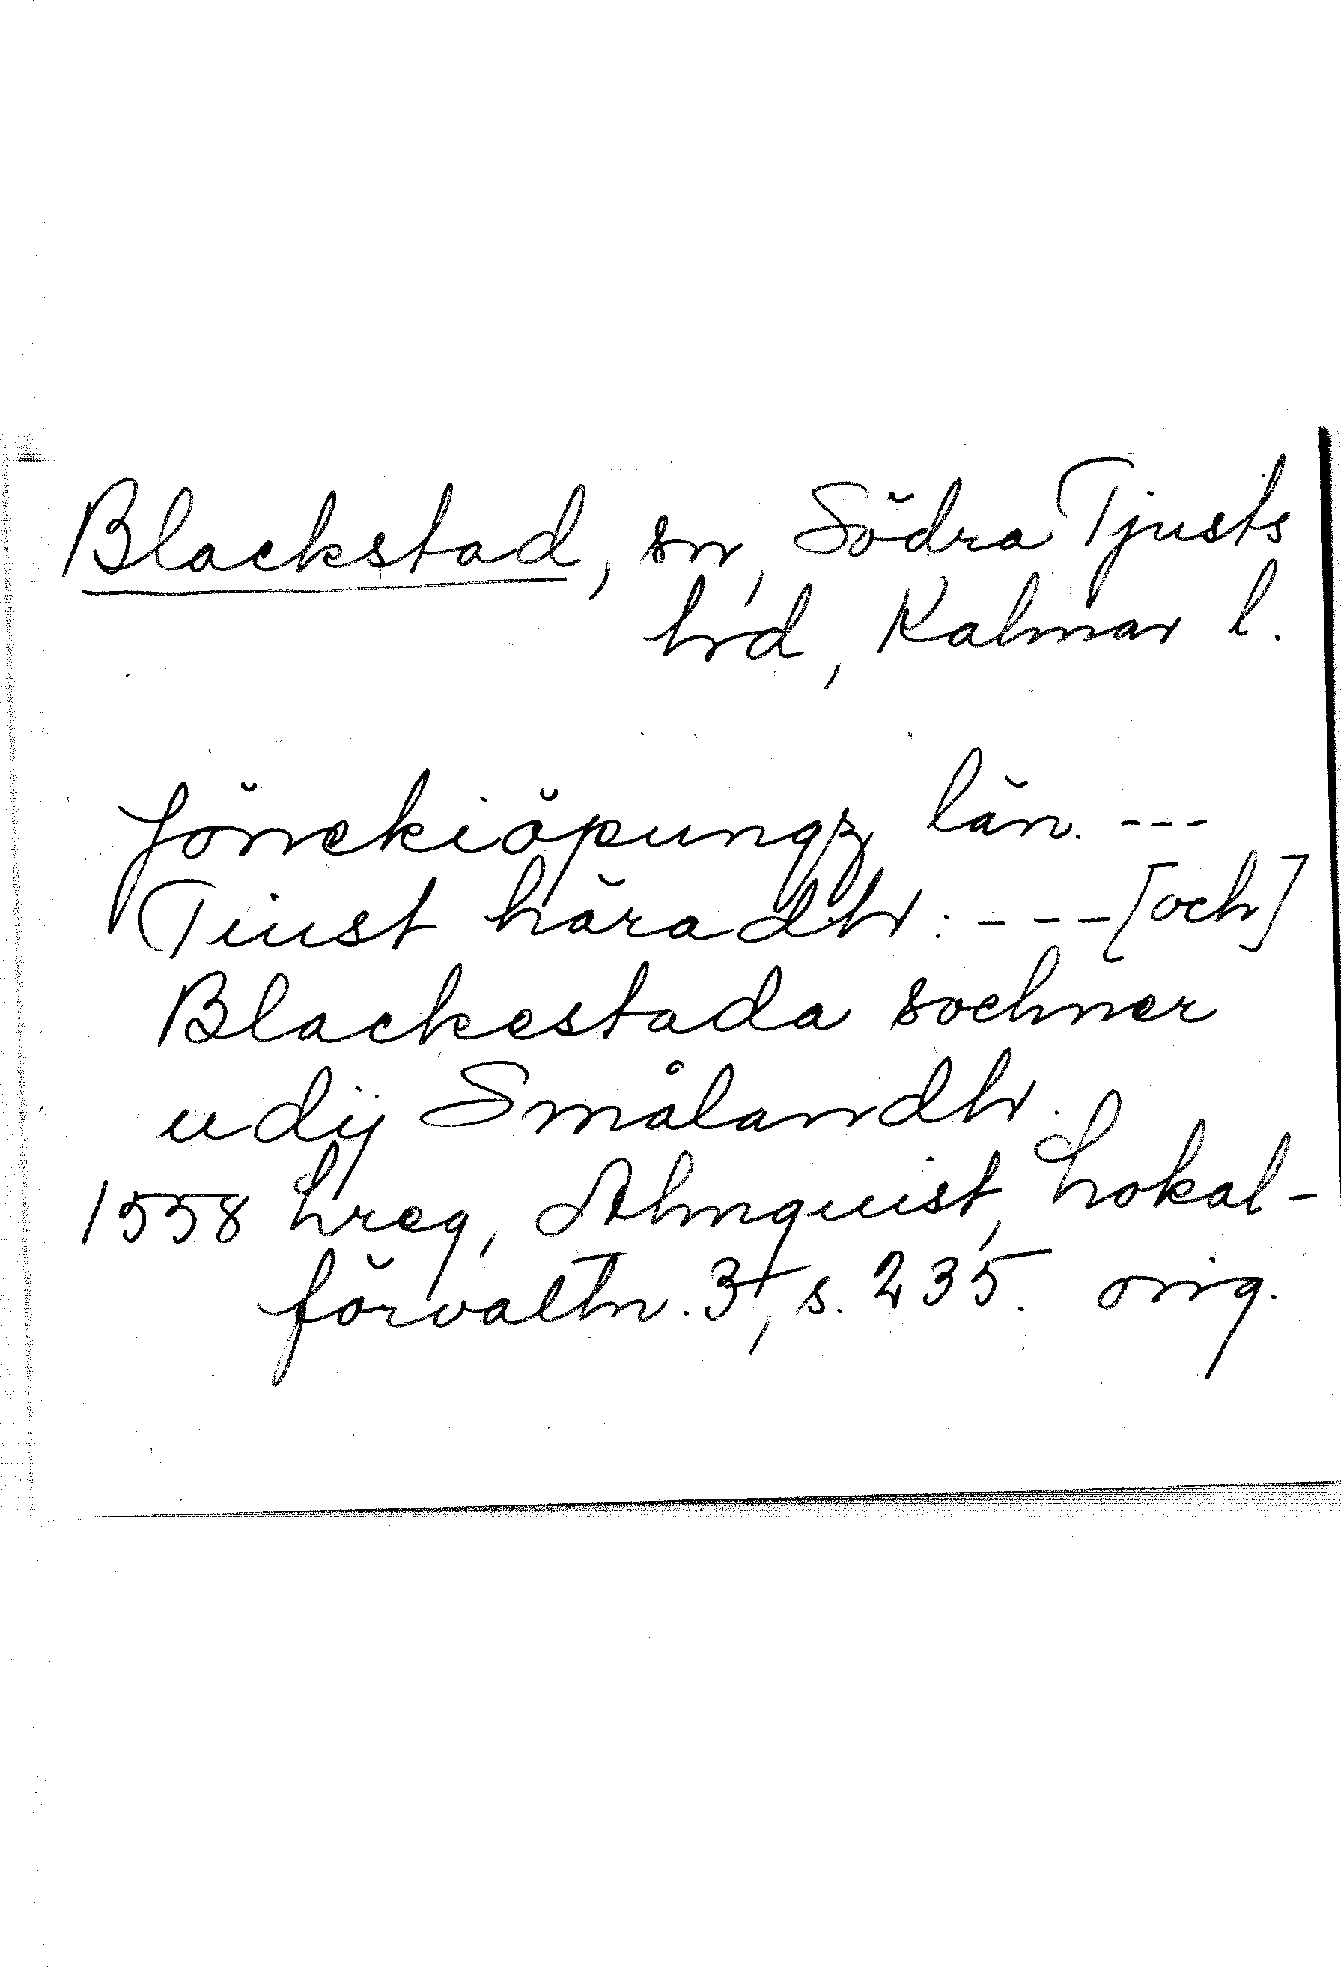 Blackstad, sn, Södra Tjusts
hd, Kalmar l.
Jönekiöpungz län. ---
Tiust häradh: ---[och]
Blackestada sochner
udij Smålandh.
1558 Lreg, Almquist, Lokal-
förvaltn. 3, s. 235. orig.